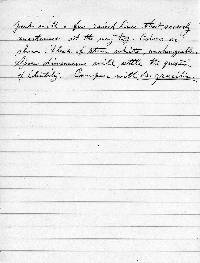 with a few raised lines that scarcely
at the very top. Colors as
shown. I think if stem white, unchangeable.
Spore dimensions will settle the question
of identity. Compare with L.